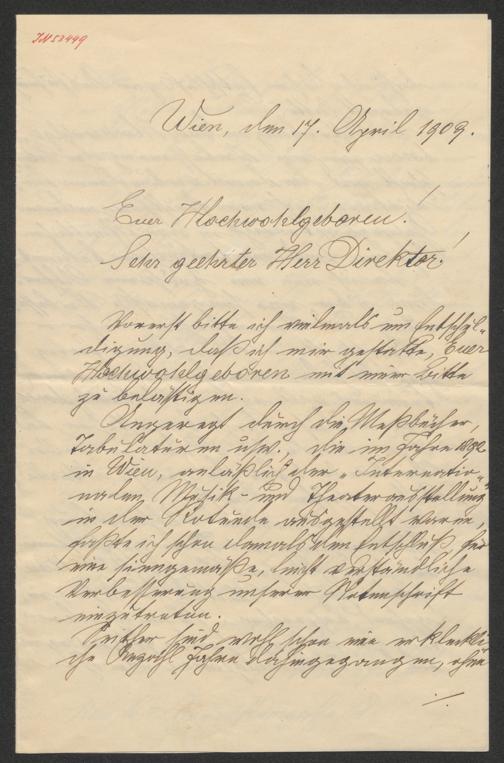 IN 53499
Wien, den 17. April 1909.
Euer Hochwohlgeboren!
Sehr geehrter Herr Direktor!
Vorerst bitte ich vielmals um Entschul-
digung, daß ich mir gestatte, Euer
Hochwohlgeboren mit einer Bitte
zu belästigen.
Angeregt durch die Meßbücher,
Tabulaturen usw., die im Jahre
in Wien, anläßlich der „Internatio-
nalen Musik- und Theaterausstellung"
in der Rotunde ausgestellt waren,
faßte ich schon damals den Entschluß, für
eine sinngemäße, leicht verständliche
Verbesserung unserer Notenschrift
einzutreten.
Seither sind wohl schon eine erkleckli-
che Anzahl Jahre dahingegangen, ohne
./.